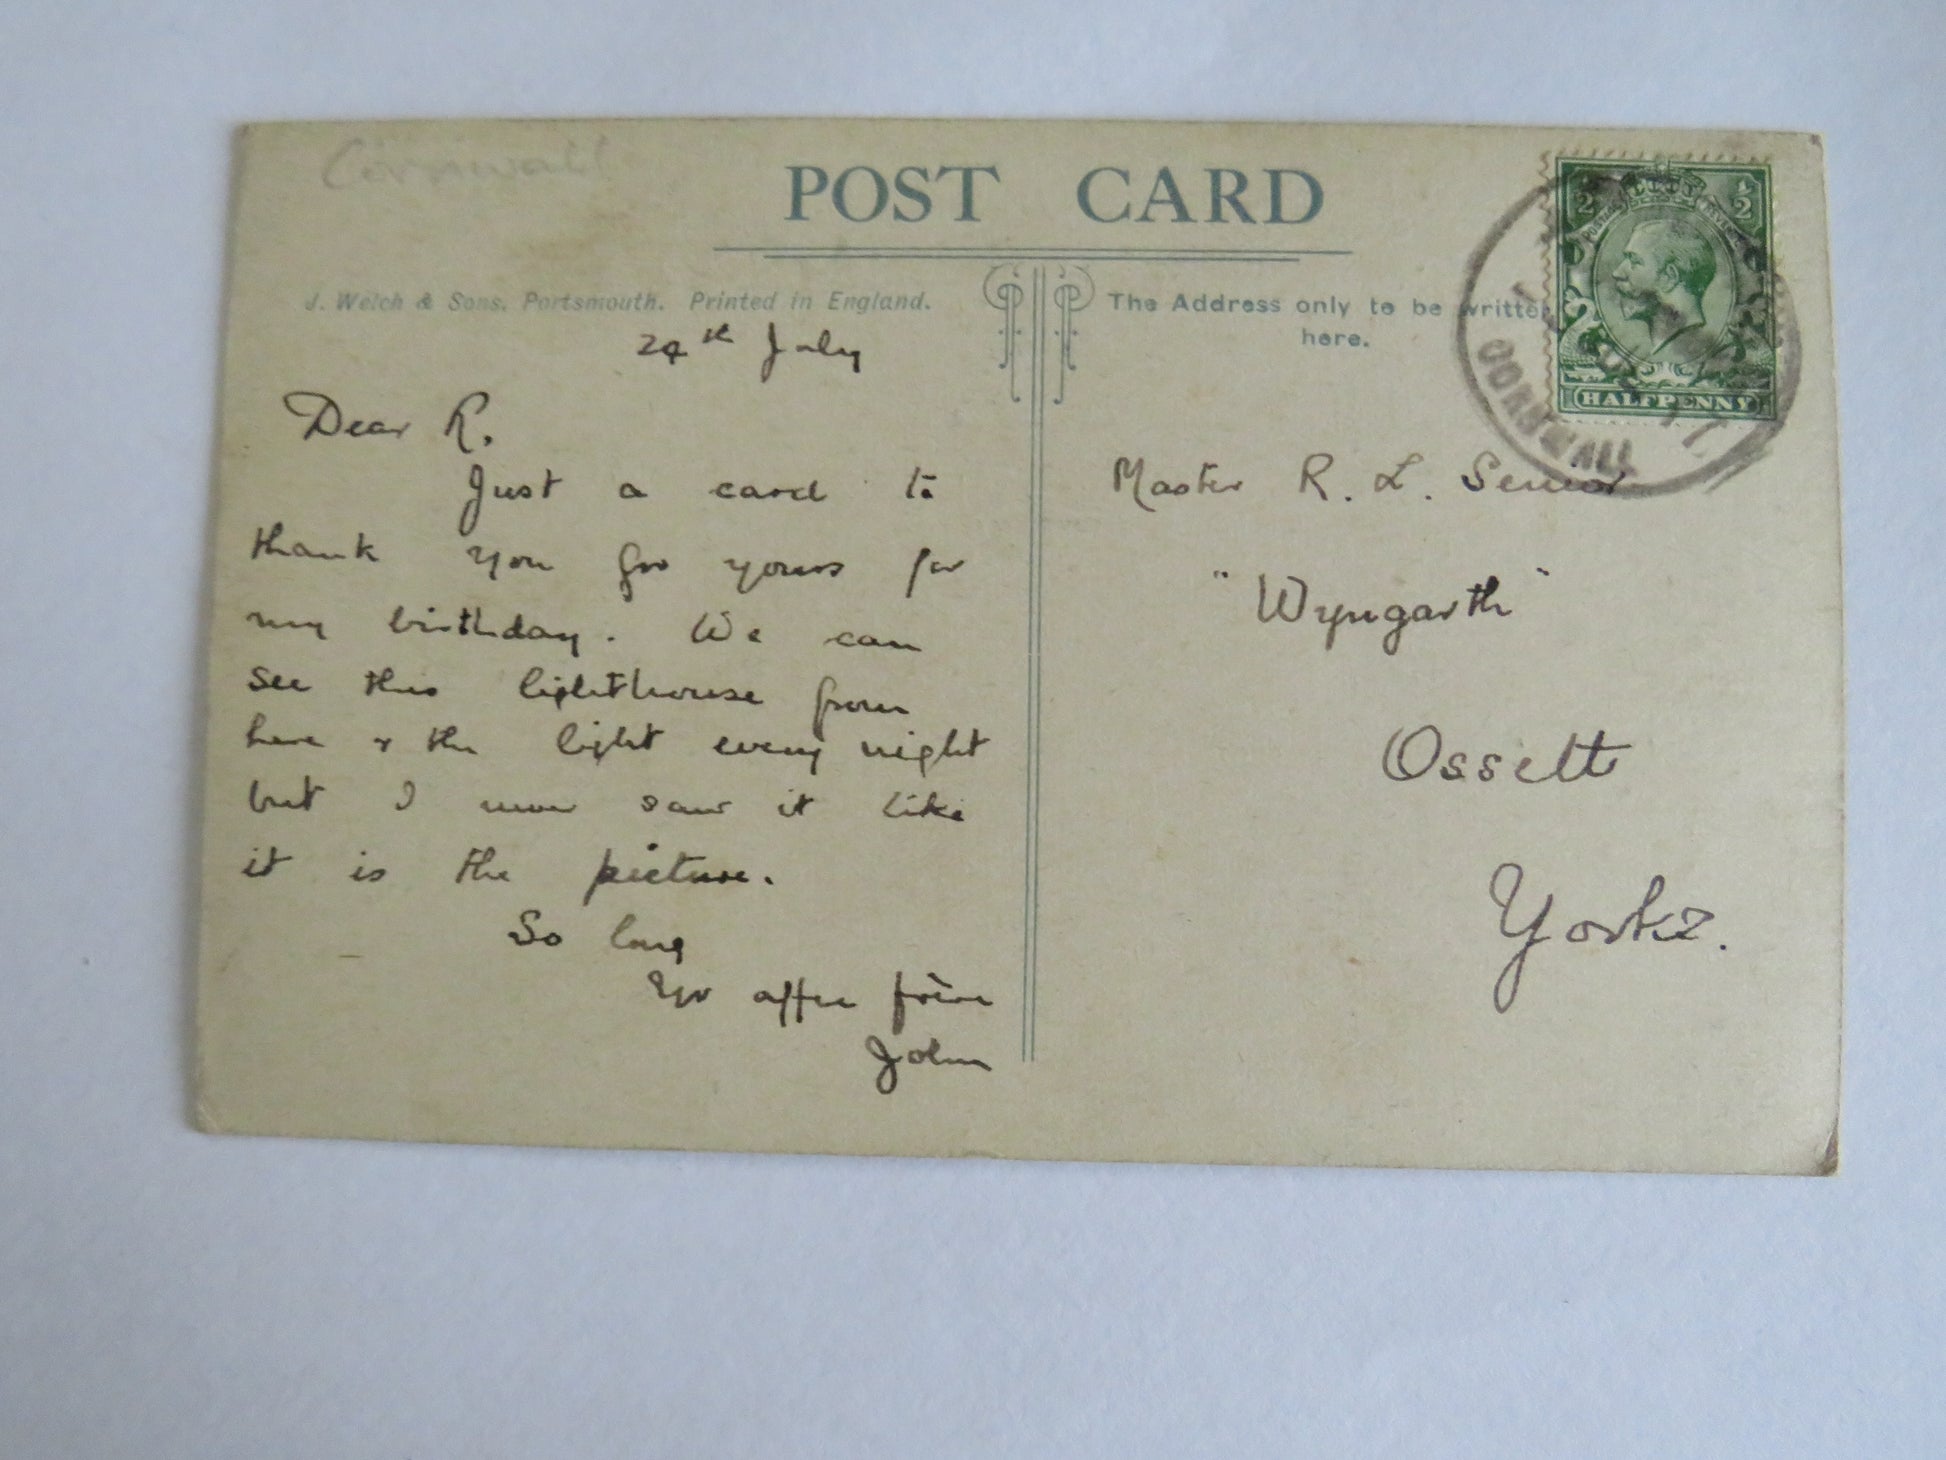 Cornwall
POST CARD
J. Welch & Sons. Portsmouth. Printed in England.
The Address only to be written
here.
24th July
Dear R.
Just a card to
thank you for yours for
my birthday. We can
see this lighthouse from
here & the light every night
but I never saw it like
it is the picture.
So long
Yr affec frère
John
Master R. L. Senior
"Wyngarth"
Ossett
Yorks.
1/2 1/2
POSTAGE REVENUE
HALFPENNY
CORNWALL